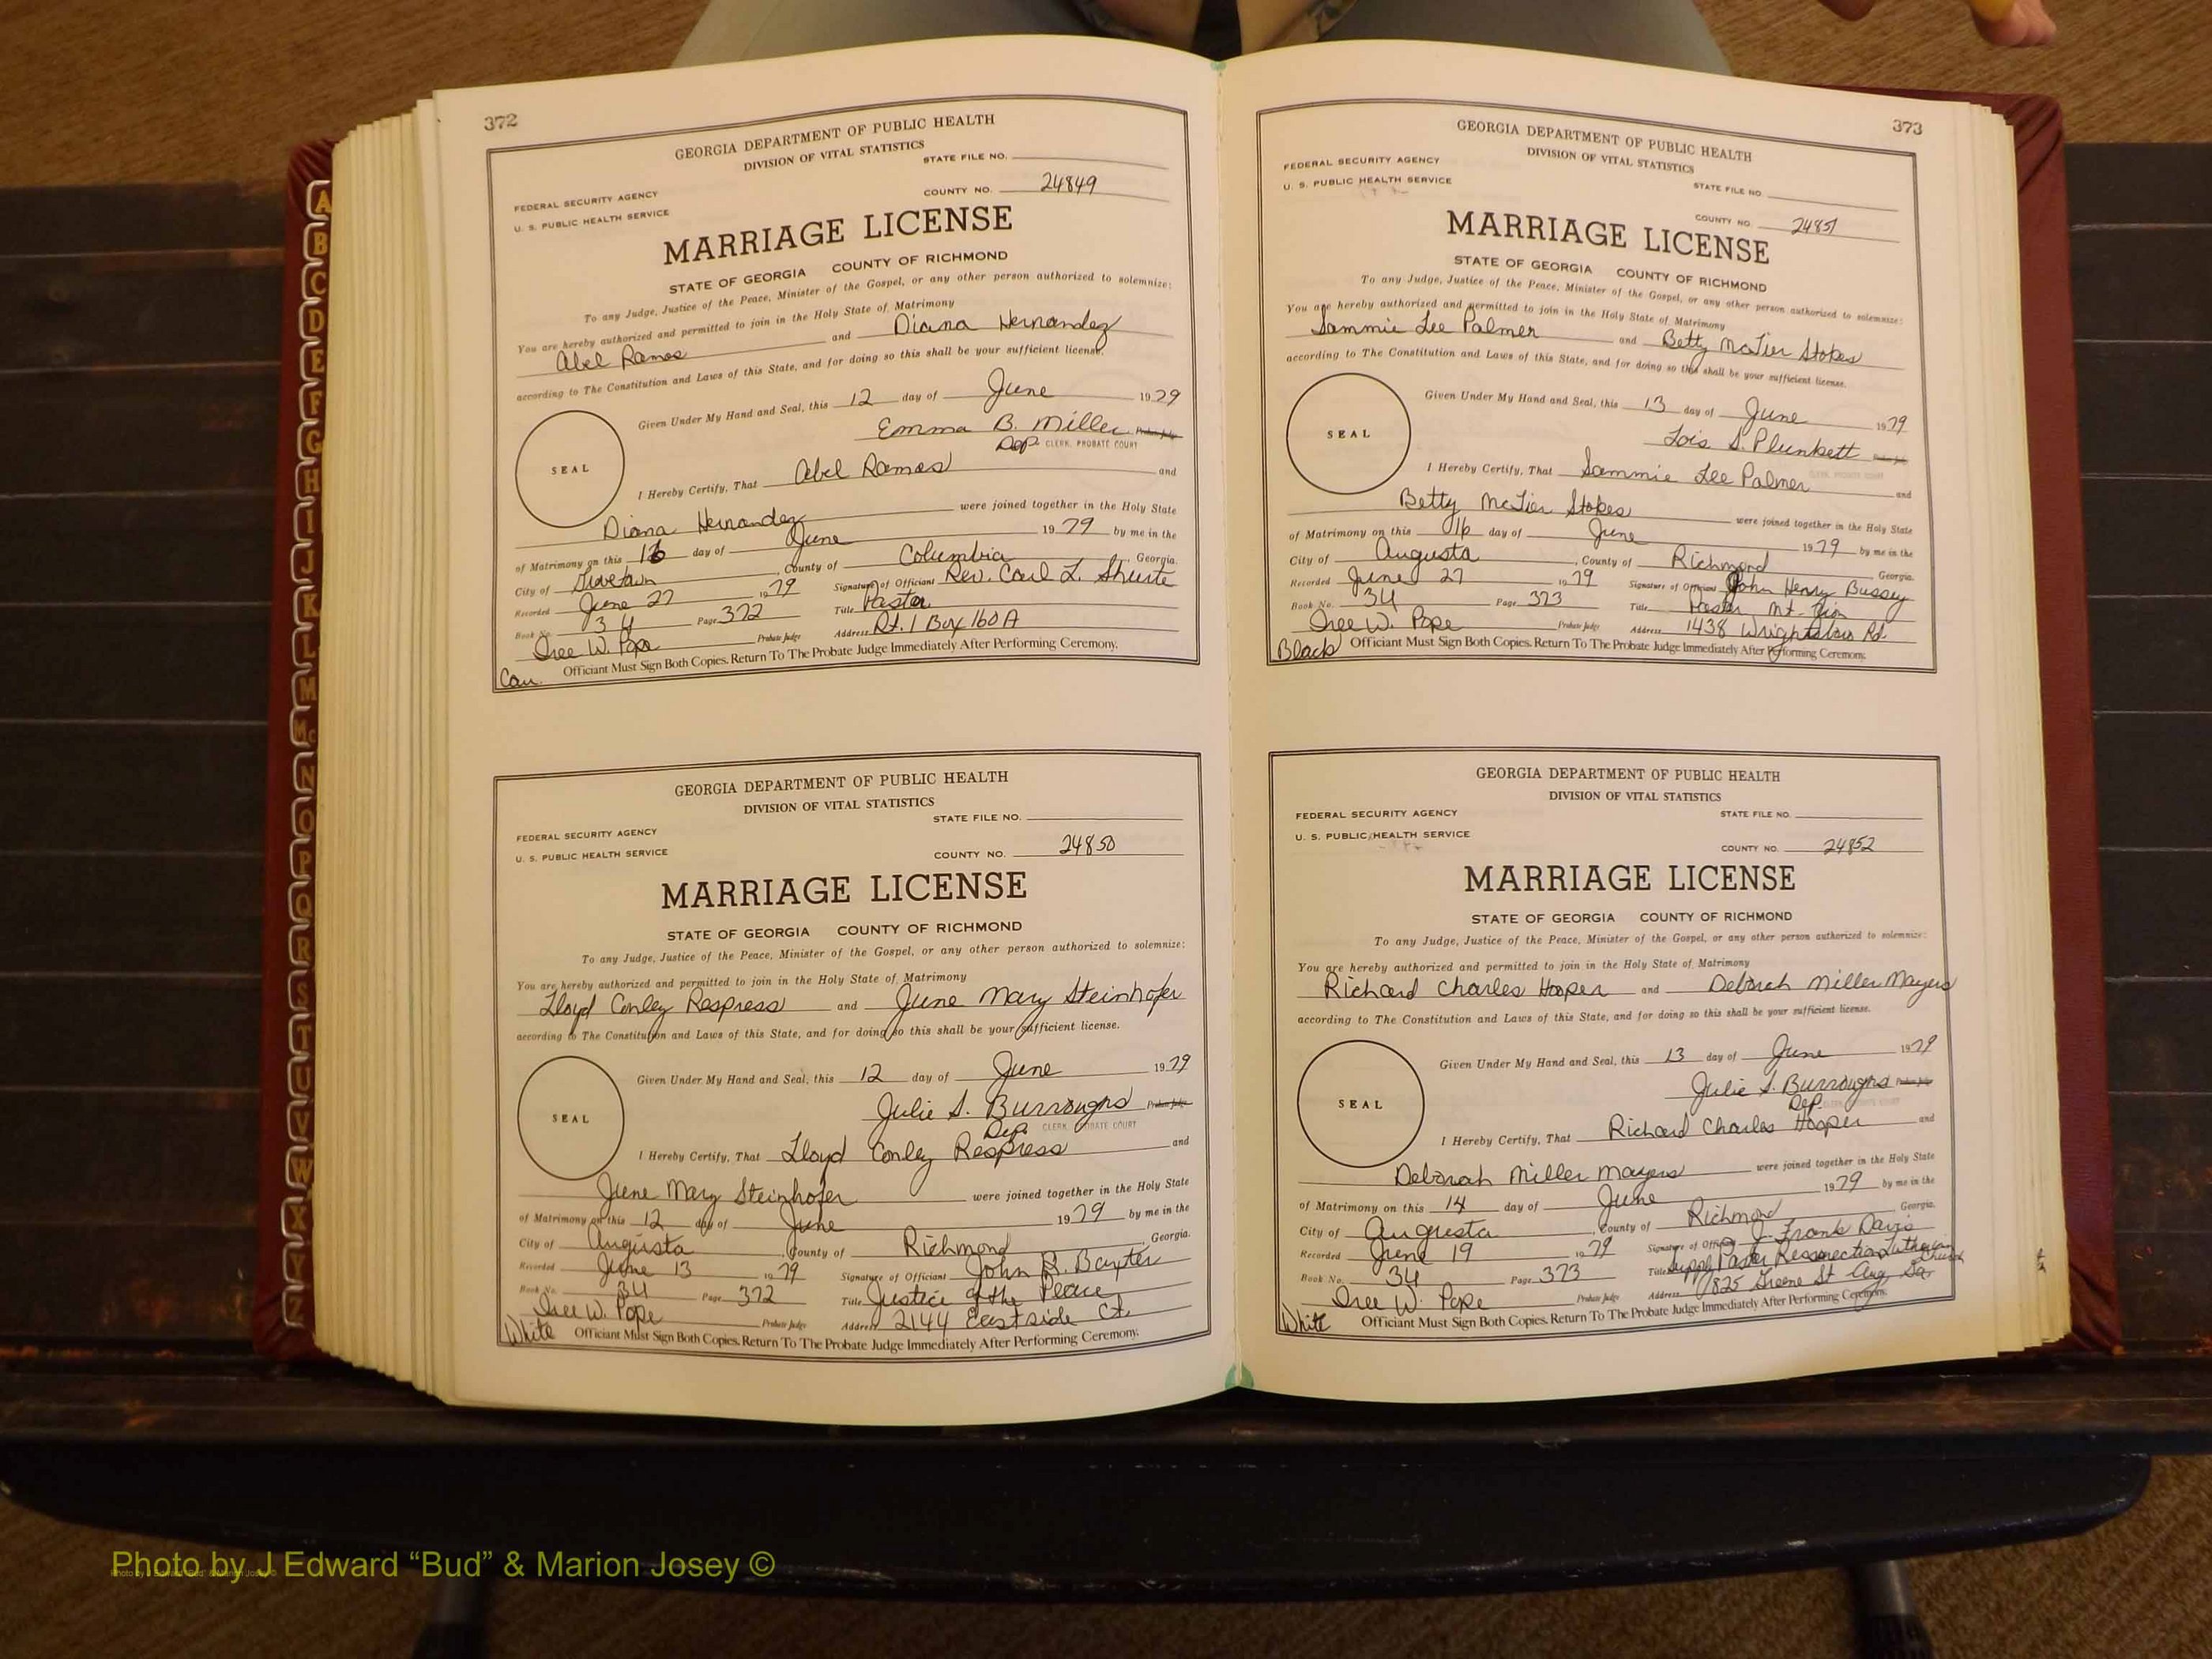 372
GEORGIA DEPARTMENT OF PUBLIC HEALTH
DIVISION OF VITAL STATISTICS
STATE FILE NO.
FEDERAL SECURITY AGENCY
COUNTY NO. 24849
U. S. PUBLIC HEALTH SERVICE
MARRIAGE LICENSE
STATE OF GEORGIA COUNTY OF RICHMOND
To any Judge, Justice of the Peace, Minister of the Gospel, or any other person authorized to solemnize:
You are hereby authorized and permitted to join in the Holy State of Matrimony
Abel Ramos and Diana Hernandez
according to The Constitution and Laws of this State, and for doing so this shall be your sufficient license.
Given Under My Hand and Seal, this 12 day of June 1979
Emma B. Miller Probate Judge
Dep. CLERK, PROBATE COURT
SEAL
I Hereby Certify, That Abel Ramos and
Diana Hernandez were joined together in the Holy State
of Matrimony on this 16 day of June 1979 by me in the
City of Grovetown, County of Columbia, Georgia.
Recorded June 27 1979 Signature of Officiant Rev. Carl L.
Book No. 34 Page 372 Title Pastor
Iree W. Pope Probate Judge Address Rt. 1 Box 160 A
Officiant Must Sign Both Copies. Return To The Probate Judge Immediately After Performing Ceremony.
Cau.
GEORGIA DEPARTMENT OF PUBLIC HEALTH
DIVISION OF VITAL STATISTICS
STATE FILE NO.
FEDERAL SECURITY AGENCY
COUNTY NO. 24850
U. S. PUBLIC HEALTH SERVICE
MARRIAGE LICENSE
STATE OF GEORGIA COUNTY OF RICHMOND
To any Judge, Justice of the Peace, Minister of the Gospel, or any other person authorized to solemnize:
You are hereby authorized and permitted to join in the Holy State of Matrimony
Lloyd Conley Respress and June Mary Steinhofer
according to The Constitution and Laws of this State, and for doing so this shall be your sufficient license.
Given Under My Hand and Seal, this 12 day of June 1979
Julie S. Burroughs Probate Judge
Dep. CLERK, PROBATE COURT
SEAL
I Hereby Certify, That Lloyd Conley Respress and
June Mary Steinhofer were joined together in the Holy State
of Matrimony on this 12 day of June 1979 by me in the
City of Augusta, County of Richmond, Georgia.
Recorded June 13 1979 Signature of Officiant John R. Baxter
Book No. 34 Page 372 Title Justice of the Peace
Iree W. Pope Probate Judge Address 2144 Eastside Ct.
White Officiant Must Sign Both Copies. Return To The Probate Judge Immediately After Performing Ceremony.
373
GEORGIA DEPARTMENT OF PUBLIC HEALTH
DIVISION OF VITAL STATISTICS
FEDERAL SECURITY AGENCY
STATE FILE NO.
U. S. PUBLIC HEALTH SERVICE
COUNTY NO. 24851
MARRIAGE LICENSE
STATE OF GEORGIA COUNTY OF RICHMOND
To any Judge, Justice of the Peace, Minister of the Gospel, or any other person authorized to solemnize:
You are hereby authorized and permitted to join in the Holy State of Matrimony
Sammie Lee Palmer and Betty McTier Stokes
according to The Constitution and Laws of this State, and for doing so this shall be your sufficient license.
Given Under My Hand and Seal, this 13 day of June 1979
Lois S. Plunkett Probate Judge
CLERK, PROBATE COURT
SEAL
I Hereby Certify, That Sammie Lee Palmer and
Betty McTier Stokes were joined together in the Holy State
of Matrimony on this 16 day of June 1979 by me in the
City of Augusta, County of Richmond Georgia.
Recorded June 27 1979 Signature of Officiant John Henry Bussey
Book No. 34 Page 373 Title Pastor Mt-Zion
Iree W. Pope Probate Judge Address 1438 Wrightsboro Rd.
Black Officiant Must Sign Both Copies. Return To The Probate Judge Immediately After Performing Ceremony.
GEORGIA DEPARTMENT OF PUBLIC HEALTH
DIVISION OF VITAL STATISTICS
FEDERAL SECURITY AGENCY
STATE FILE NO.
U. S. PUBLIC HEALTH SERVICE
COUNTY NO. 24852
MARRIAGE LICENSE
STATE OF GEORGIA COUNTY OF RICHMOND
To any Judge, Justice of the Peace, Minister of the Gospel, or any other person authorized to solemnize:
You are hereby authorized and permitted to join in the Holy State of Matrimony
Richard Charles Hooper and Deborah Miller Mayers
according to The Constitution and Laws of this State, and for doing so this shall be your sufficient license.
Given Under My Hand and Seal, this 13 day of June 1979
Julie S. Burroughs Probate Judge
Dep. CLERK, PROBATE COURT
SEAL
I Hereby Certify, That Richard Charles Hooper and
Deborah Miller Mayers were joined together in the Holy State
of Matrimony on this 14 day of June 1979 by me in the
City of Augusta, County of Richmond Georgia.
Recorded June 19 1979 Signature of Officiant J. Frank Davis
Book No. 34 Page 373 Title Supply Pastor Resurrection Lutheran Church
Iree W. Pope Probate Judge Address 825 Greene St Aug Ga
White Officiant Must Sign Both Copies. Return To The Probate Judge Immediately After Performing Ceremony.
A
B
C
D
E
F
G
H
I
J
K
L
M
Mc
N
O
P
Q
R
S
T
U
V
W
X
Y
Z
Photo by J Edward “Bud” & Marion Josey ©
Photo by J Edward “Bud” & Marion Josey ©